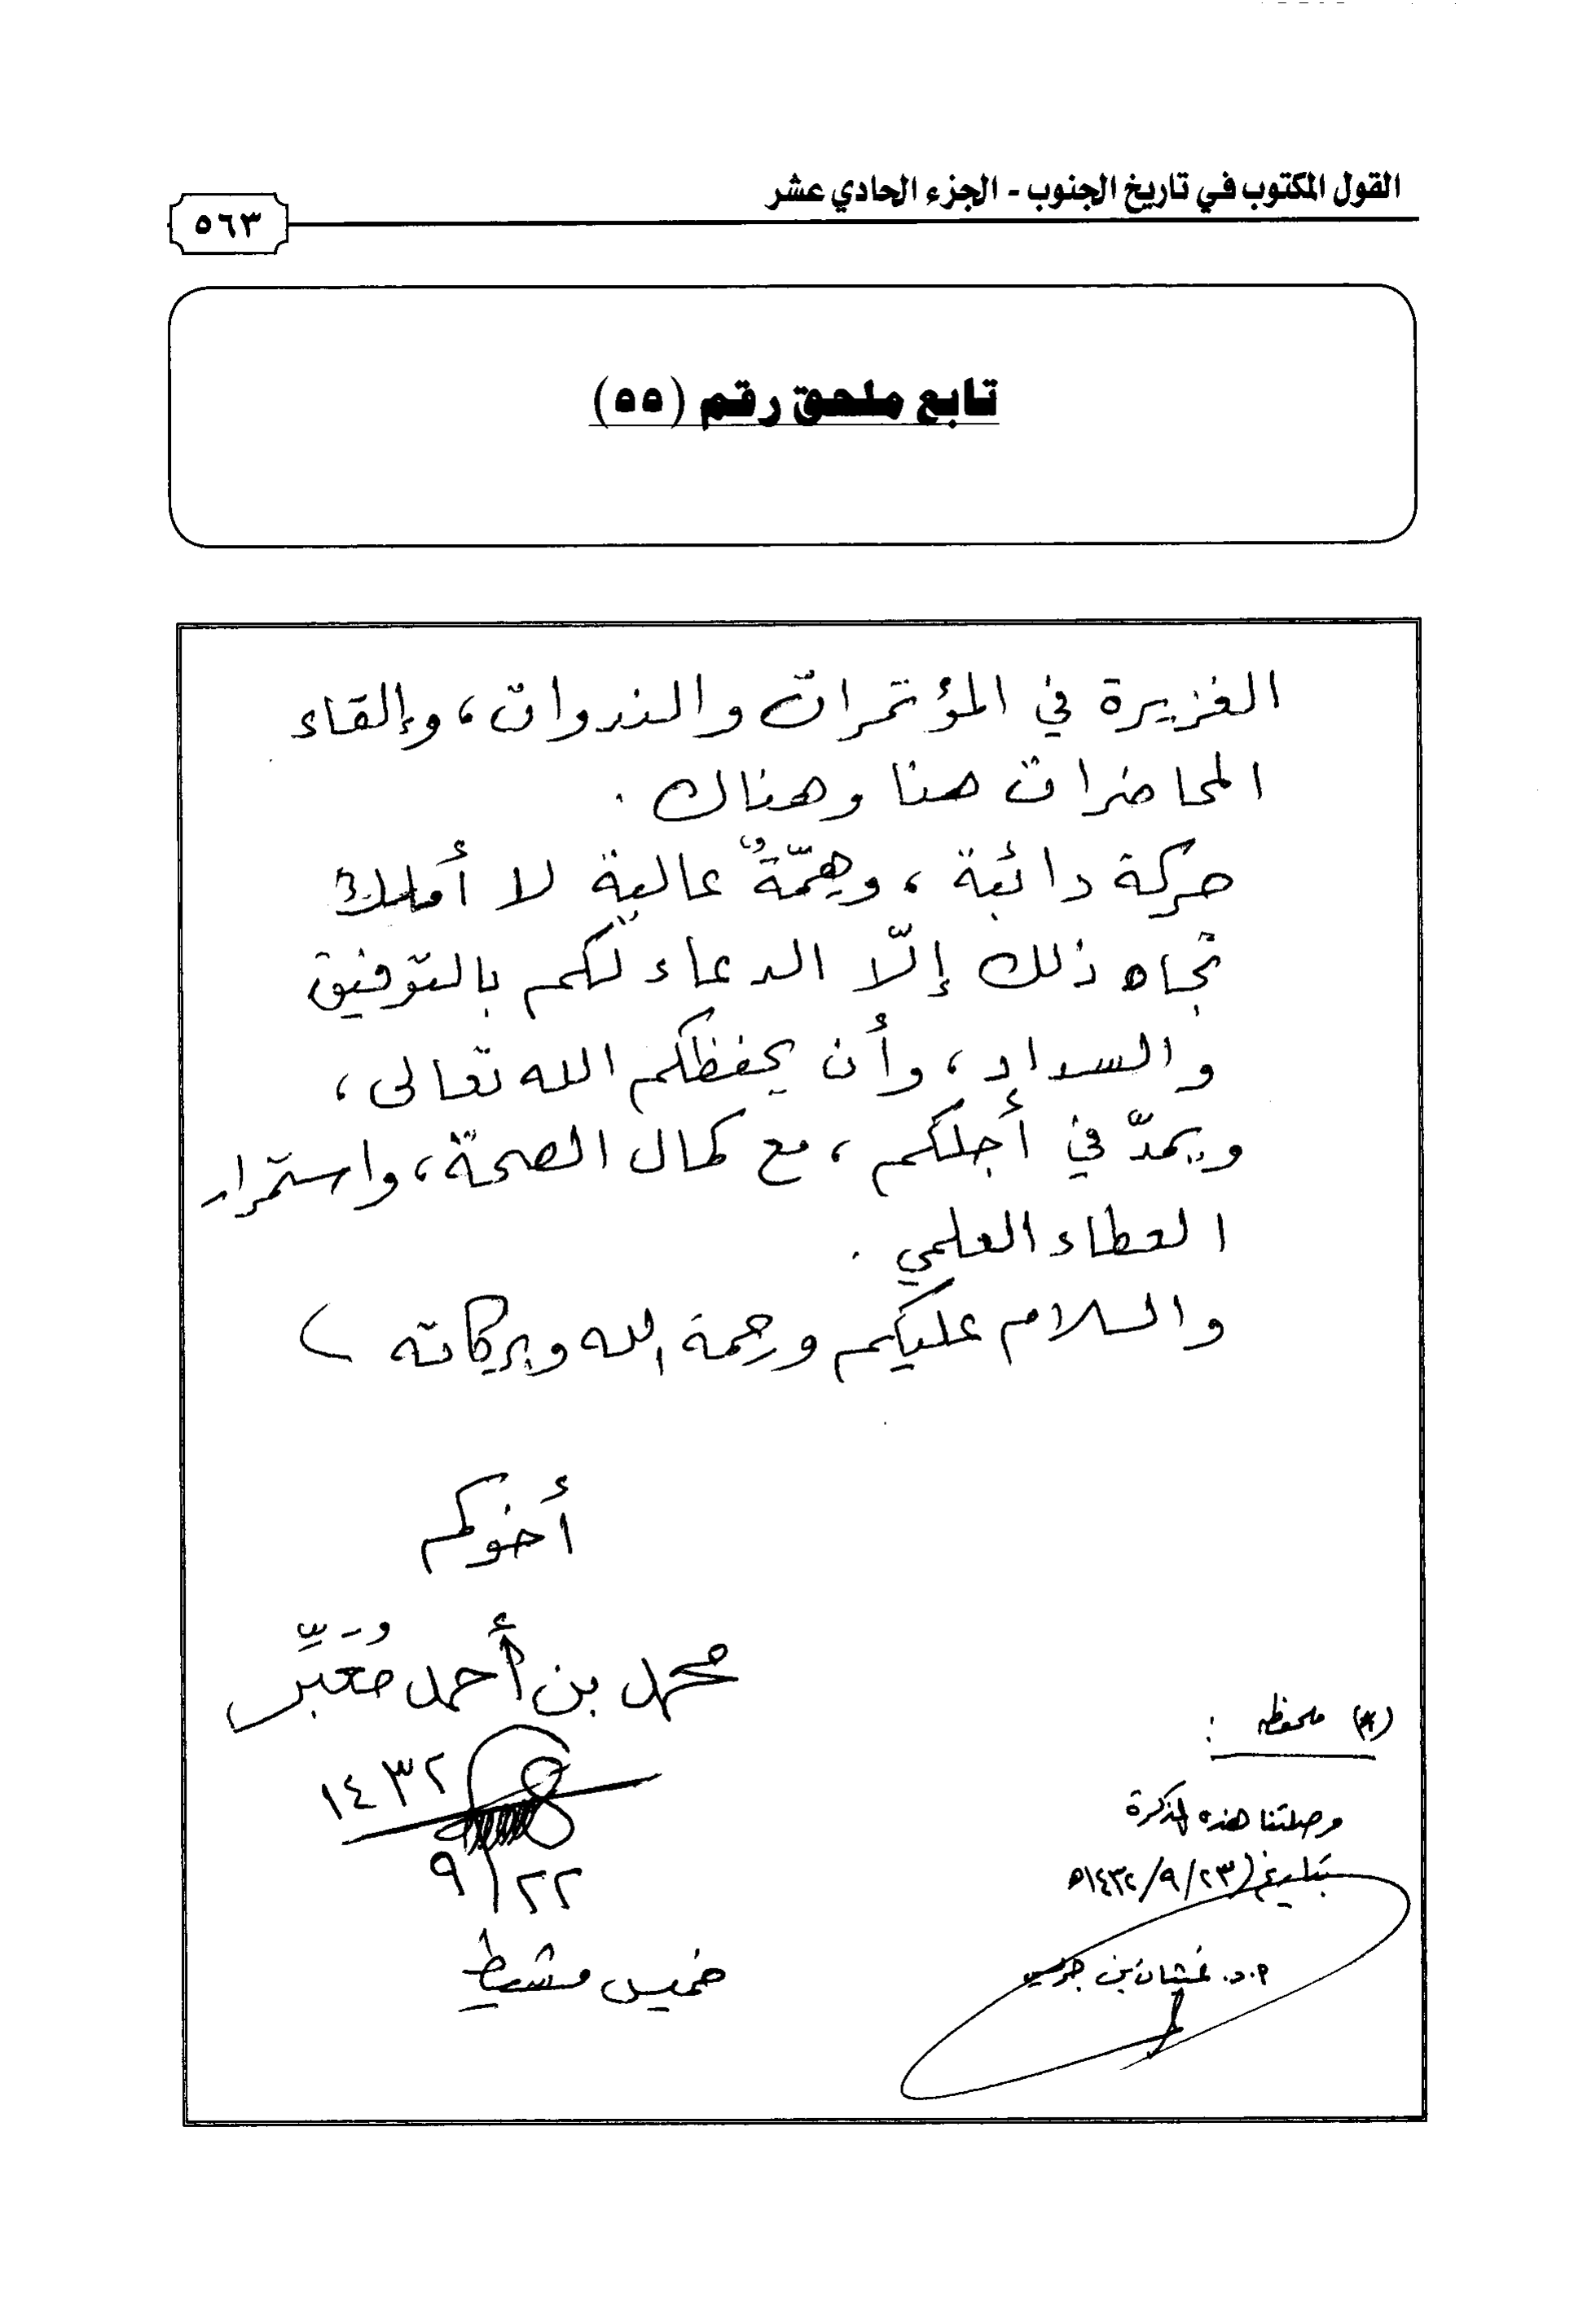 القول المكتوب في تاريخ الجنوب - الجزء الحادي عشر
٥٦٣
تابع ملحق رقم (٥٥)
الغزيرة في المؤتمرات والندوات، وإلقاء
المحاضرات هنا وهناك .
حركة دائبة ، وهِمّةٌ عالية لا أملك
تجاه ذلك إلّا الدعاء لكم بالتوفيق
والسداد ، وأن يحفظكم الله تعالى ،
ويمدّ في أجلكم ، مع كمال الصحة ، واستمرار
العطاء العلمي .
والسلام عليكم ورحمة الله وبركاته )
أخوكم
محمد بن أحمد مُعَبِّر
١٤٣٢
٩/٢٢
خميس مشيط
(*) ملحوظة :
وصلتنا هذه المذكرة
بتاريخ (٢٣/٩/١٤٣٢هـ
أ.د. غيثان بن جريس